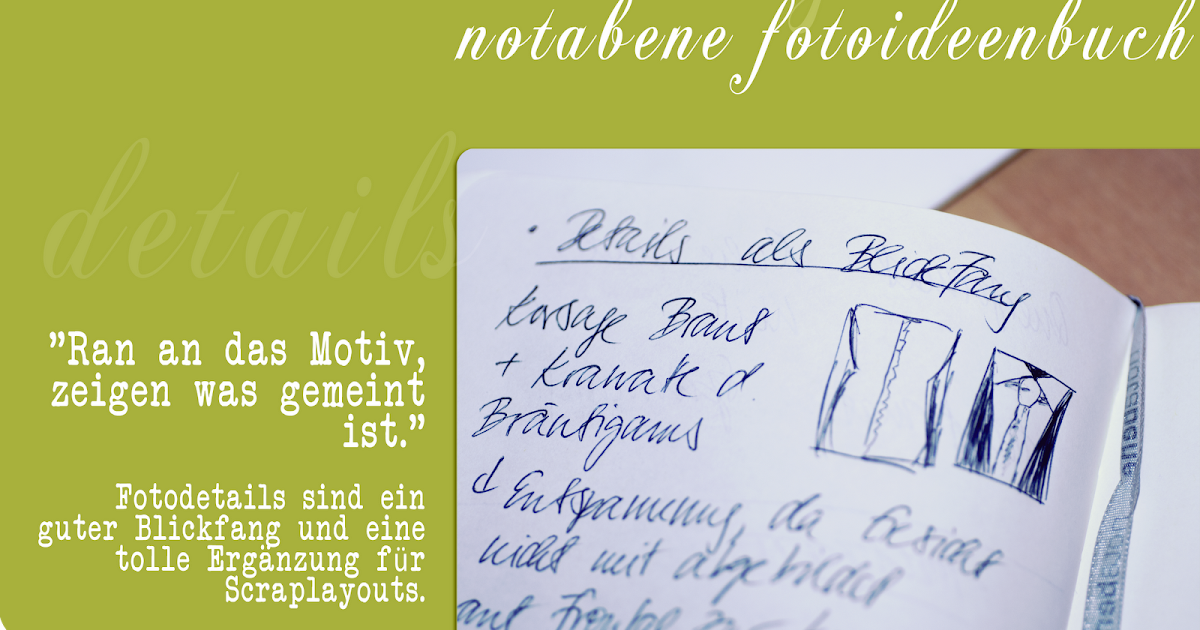 notabene fotoideenbuch
details
"Ran an das Motiv,
zeigen was gemeint
ist."
Fotodetails sind ein
guter Blickfang und eine
tolle Ergänzung für
Scraplayouts.
• Details als Blickfang
Korsage Braut
+ Krawatte d.
Bräutigams
Entspannung, da Gesicht
nicht mit abgebildet